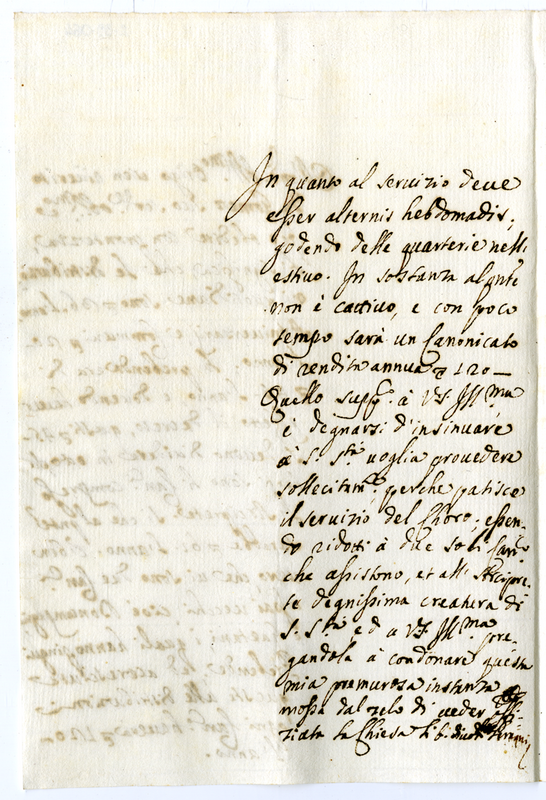 In quanto al servizio deve
esser alternis hebdomadis,
godendo delle quarterie nell'
estivo. In sostanza al pnte
non è cattivo, e con poco
tempo sarà un Canonicato
di rendita annua 120 —
Quello suppco à VS Illma
è degnarsi d'insinuare
à S. Stà voglia provedere
sollecitamte, perche patisce
il servizio del Choro, essen-
do ridotti à due soli
che assistono, et all' Arcipre-
te degnissima creatura di
S. Stà, ed a VS Illma pre-
gandola à condonare questa
mia premurosa instanza
mossa dal zelo di veder
ziata la Chiesa